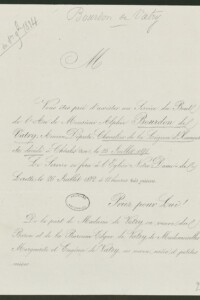 Bourdon de Vatry
M
Vous êtes prié d'assister au Service du Bout
de l'An de Monsieur Alphée Bourdon de
Vatry, Ancien Député, Chevalier de la Légion d'Honneur
décédé à le 26 Juillet
Le Service se fera à l'Eglise Notre Dame de
Lorette le 26 Juillet à heures
Priez pour Lui!
De la part de Madame de Vatry sa veuve, du
Baron et de la Baronne Edgar de Vatry, de Mesdemoiselles
Marguerite et Eugénie de Vatry ses neveu, nièce et petites
nièces